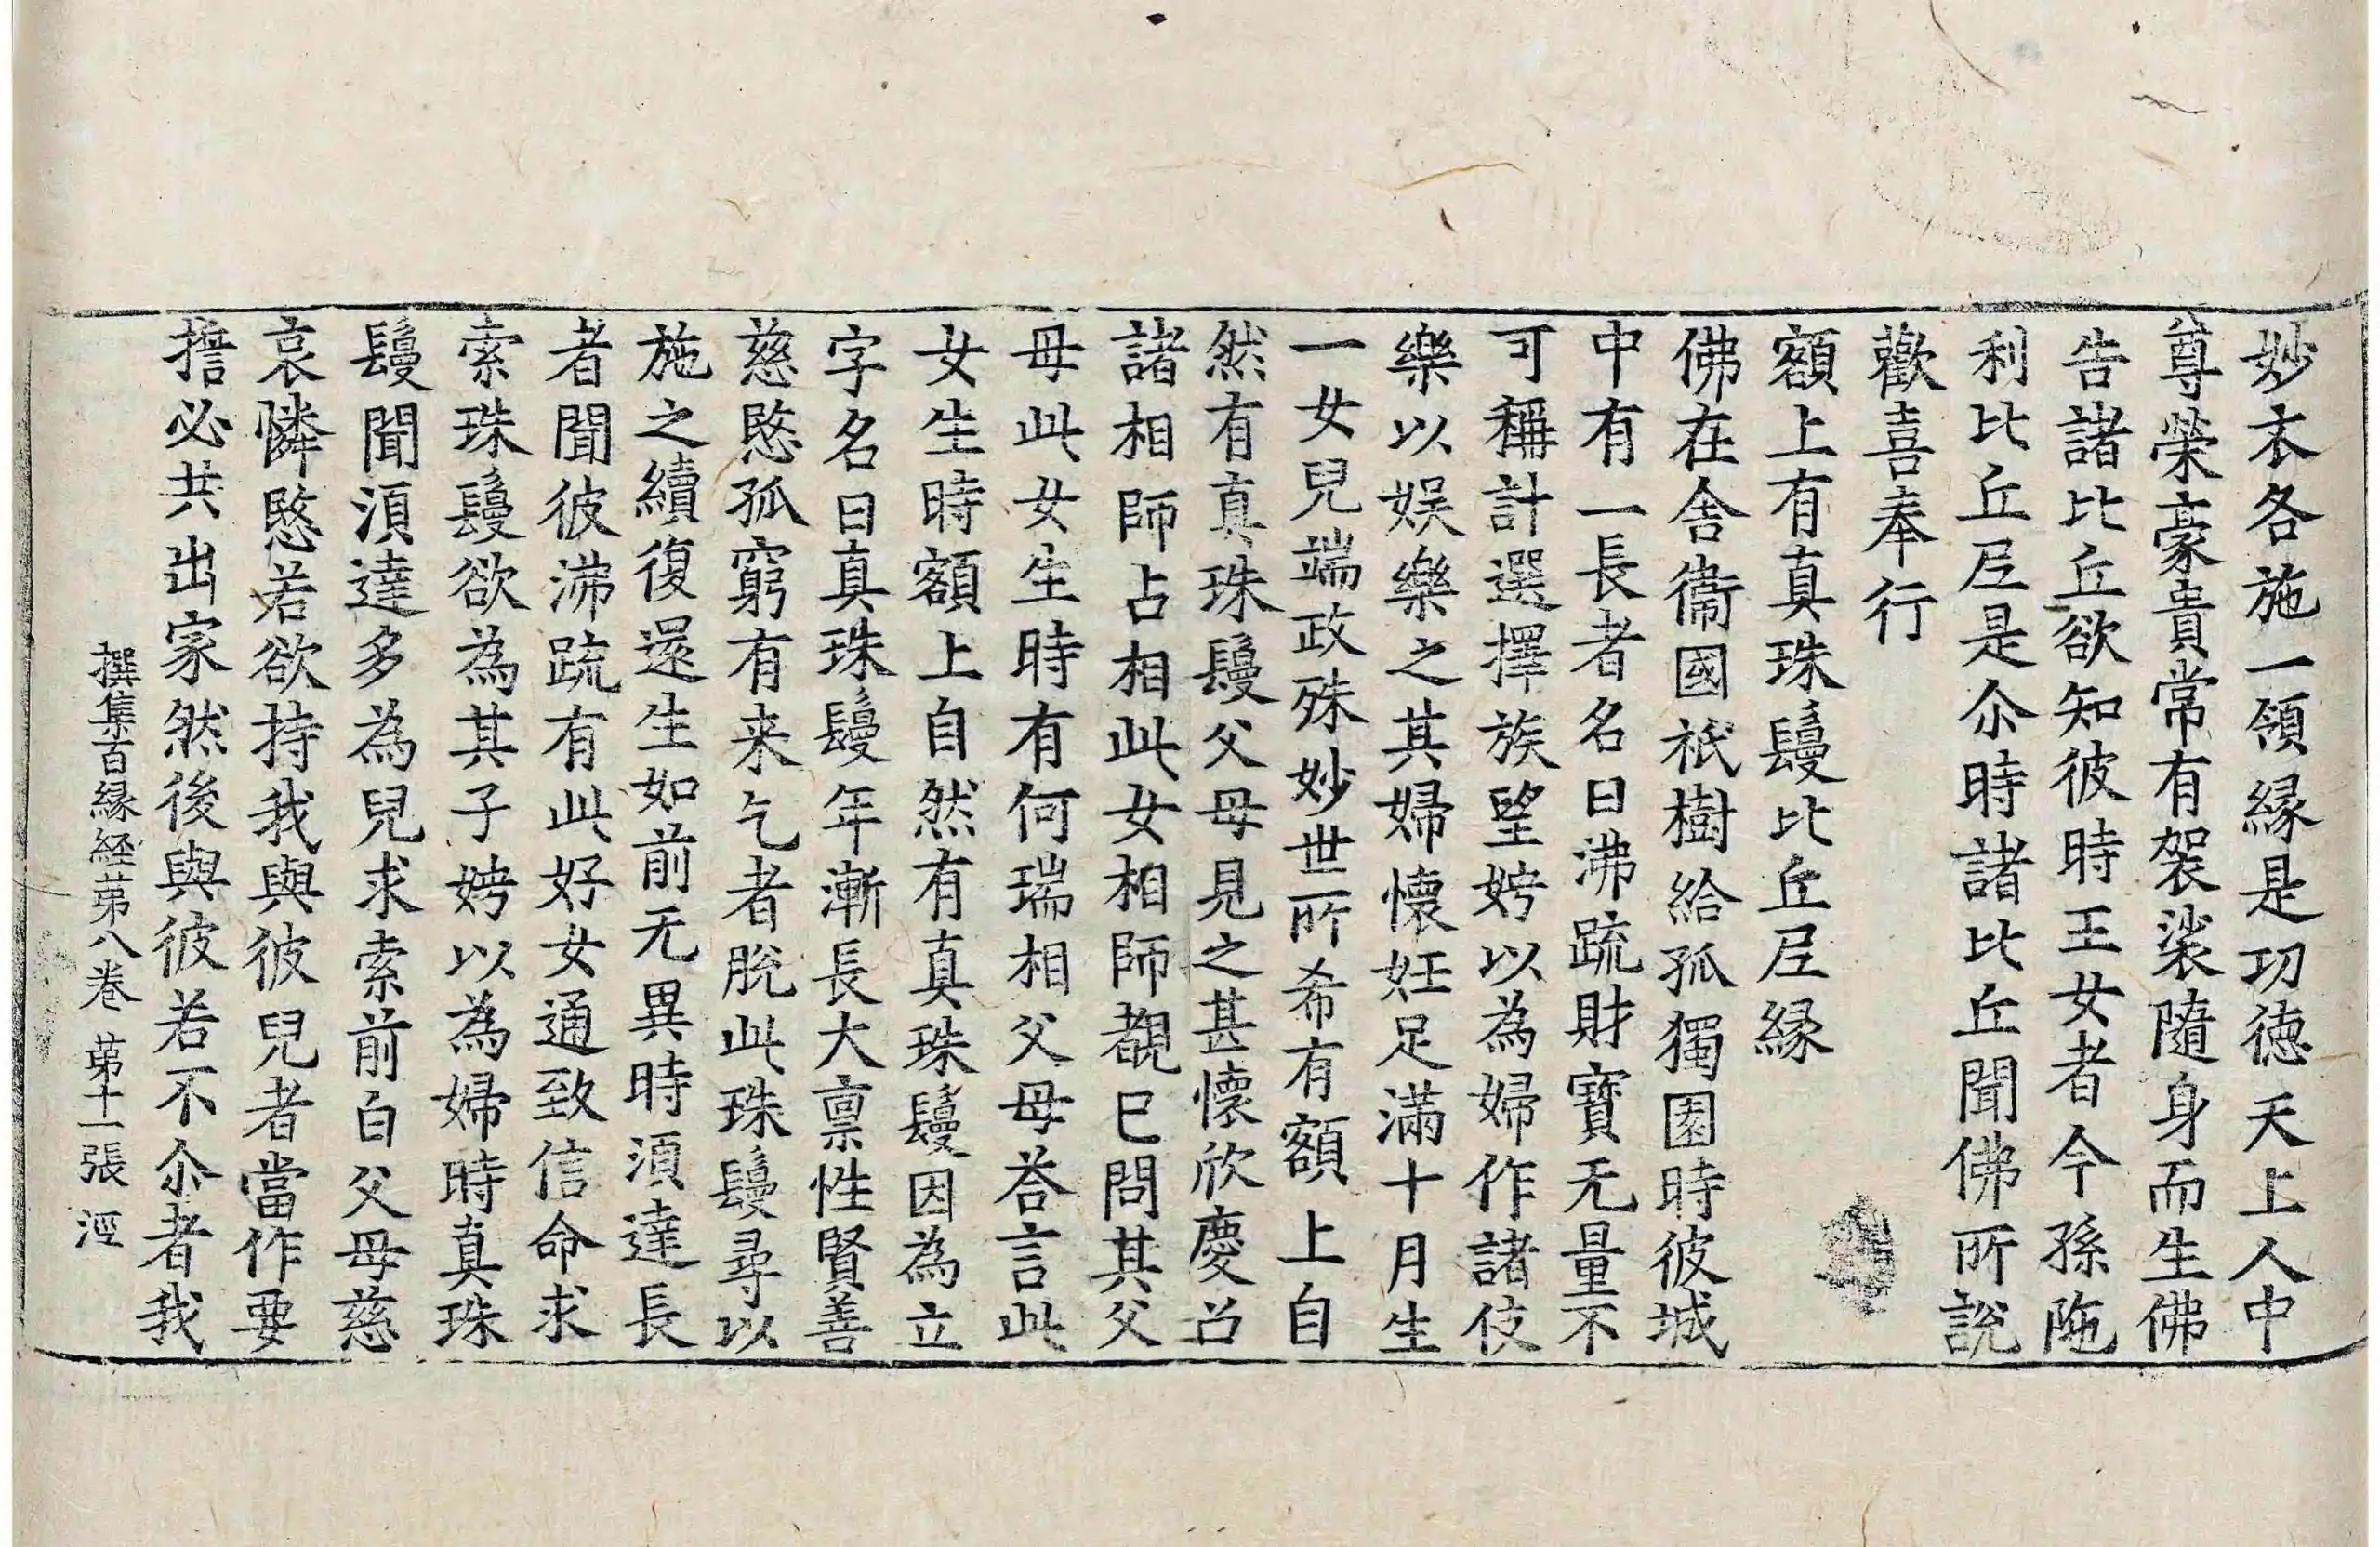 妙衣各施一領緣是功德天上人中
尊榮豪貴常有袈裟隨身而生佛
告諸比丘欲知彼時王女者今孫陁
利比丘尼是尒時諸比丘聞佛所說
歡喜奉行
額上有真珠鬘比丘尼緣
佛在舍衞國祇樹給孤獨園時彼城
中有一長者名曰沸疏財寶无量不
可稱計選擇族望娉以為婦作諸伎
樂以娛樂之其婦懷妊足滿十月生
一女兒端政殊妙世所希有額上自
然有真珠鬘父母見之甚懷欣慶召
諸相師占相此女相師覩已問其父
母此女生時有何瑞相父母荅言此
女生時額上自然有真珠鬘因為立
字名曰真珠鬘年漸長大禀性賢善
慈愍孤窮有来乞者脫此珠鬘尋以
施之續復還生如前无異時湏達長
者聞彼沸疏有此好女通致信命求
索珠鬘欲為其子娉以為婦時真珠
鬘聞湏達多為兒求索前白父母慈
哀憐愍若欲持我與彼兒者當作要
擔必共出家然後與彼若不尒者我
撰集百緣経苐八卷 苐十一張 涇